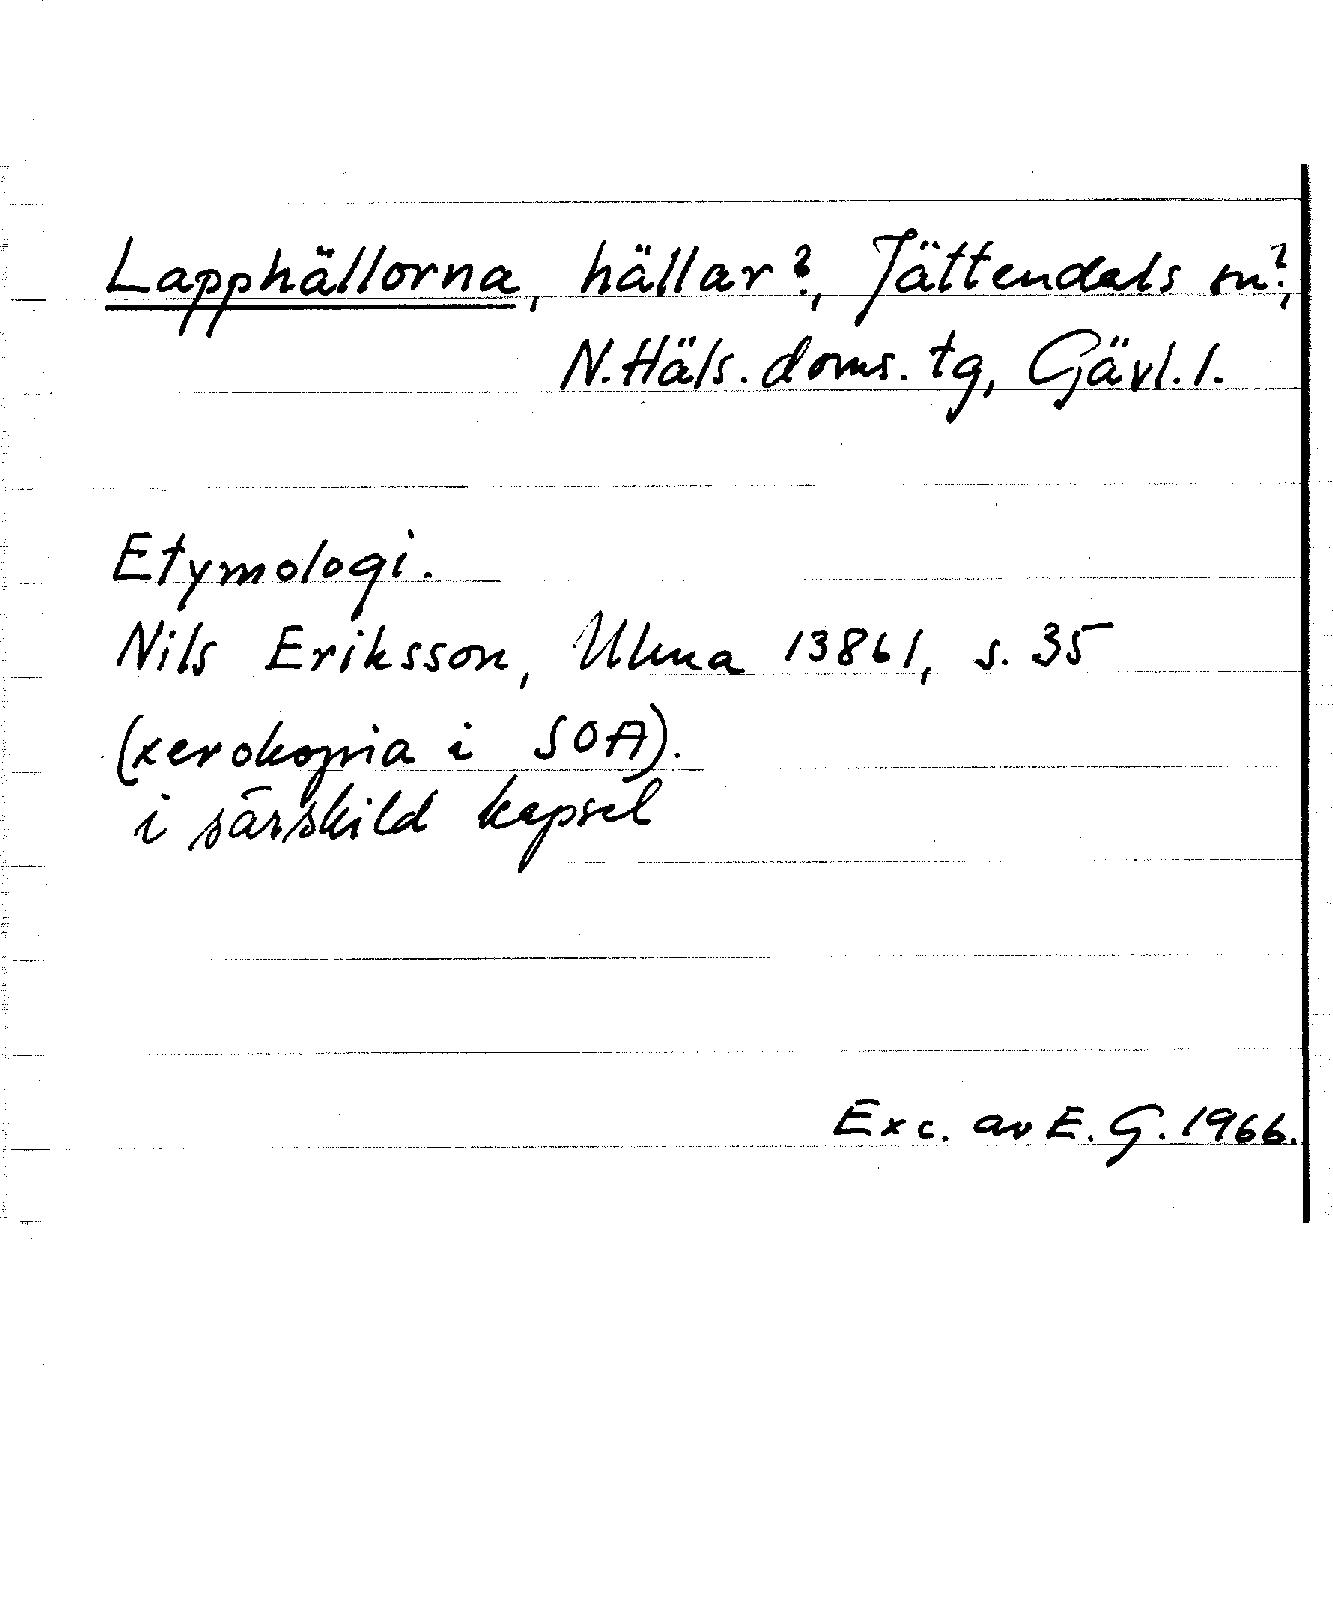 Lapphällorna, hällar?, Jättendals sn?,
N. Häls. doms. tg, Gävl. l.
Etymologi.
Nils Eriksson, Ulma 13861, s. 35
(xerokopia i SOA).
i särskild kapsel
Exc. av E. G. 1966.